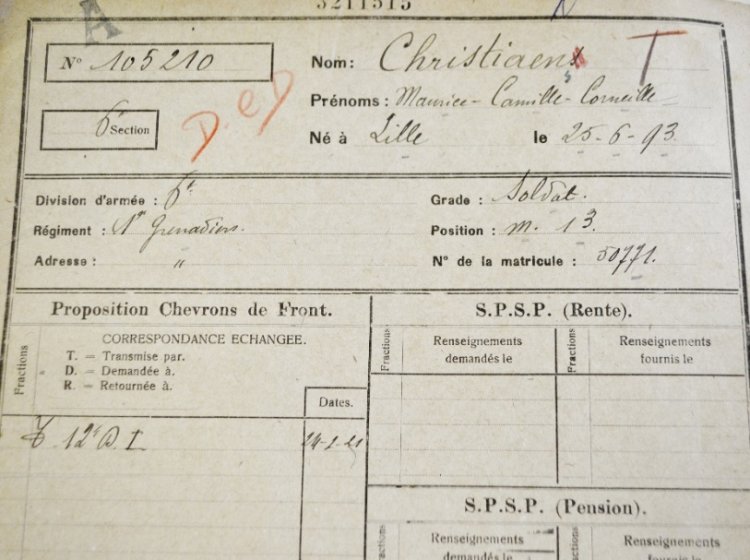 3211515
A
N° 105210
Nom: Christiaens T
D.C.D
Prénoms: Maurice-Camille-Corneille
6e Section
Né à Lille le 25-6-93
Division d'armée: 6e
Grade: Soldat.
Régiment: 1er Grenadiers.
Position: m. 13
Adresse: "
N° de la matricule: 50771.
Proposition Chevrons de Front.
S.P.S.P. (Rente).
Fractions
CORRESPONDANCE ECHANGÉE.
T. = Transmise par.
D. = Demandée à.
R. = Retournée à.
Dates.
Fractions
Renseignements
demandés le
Fractions
Renseignements
fournis le
T 12e D.I
S.P.S.P. (Pension).
Renseignements
demandés le
Renseignements
fournis le